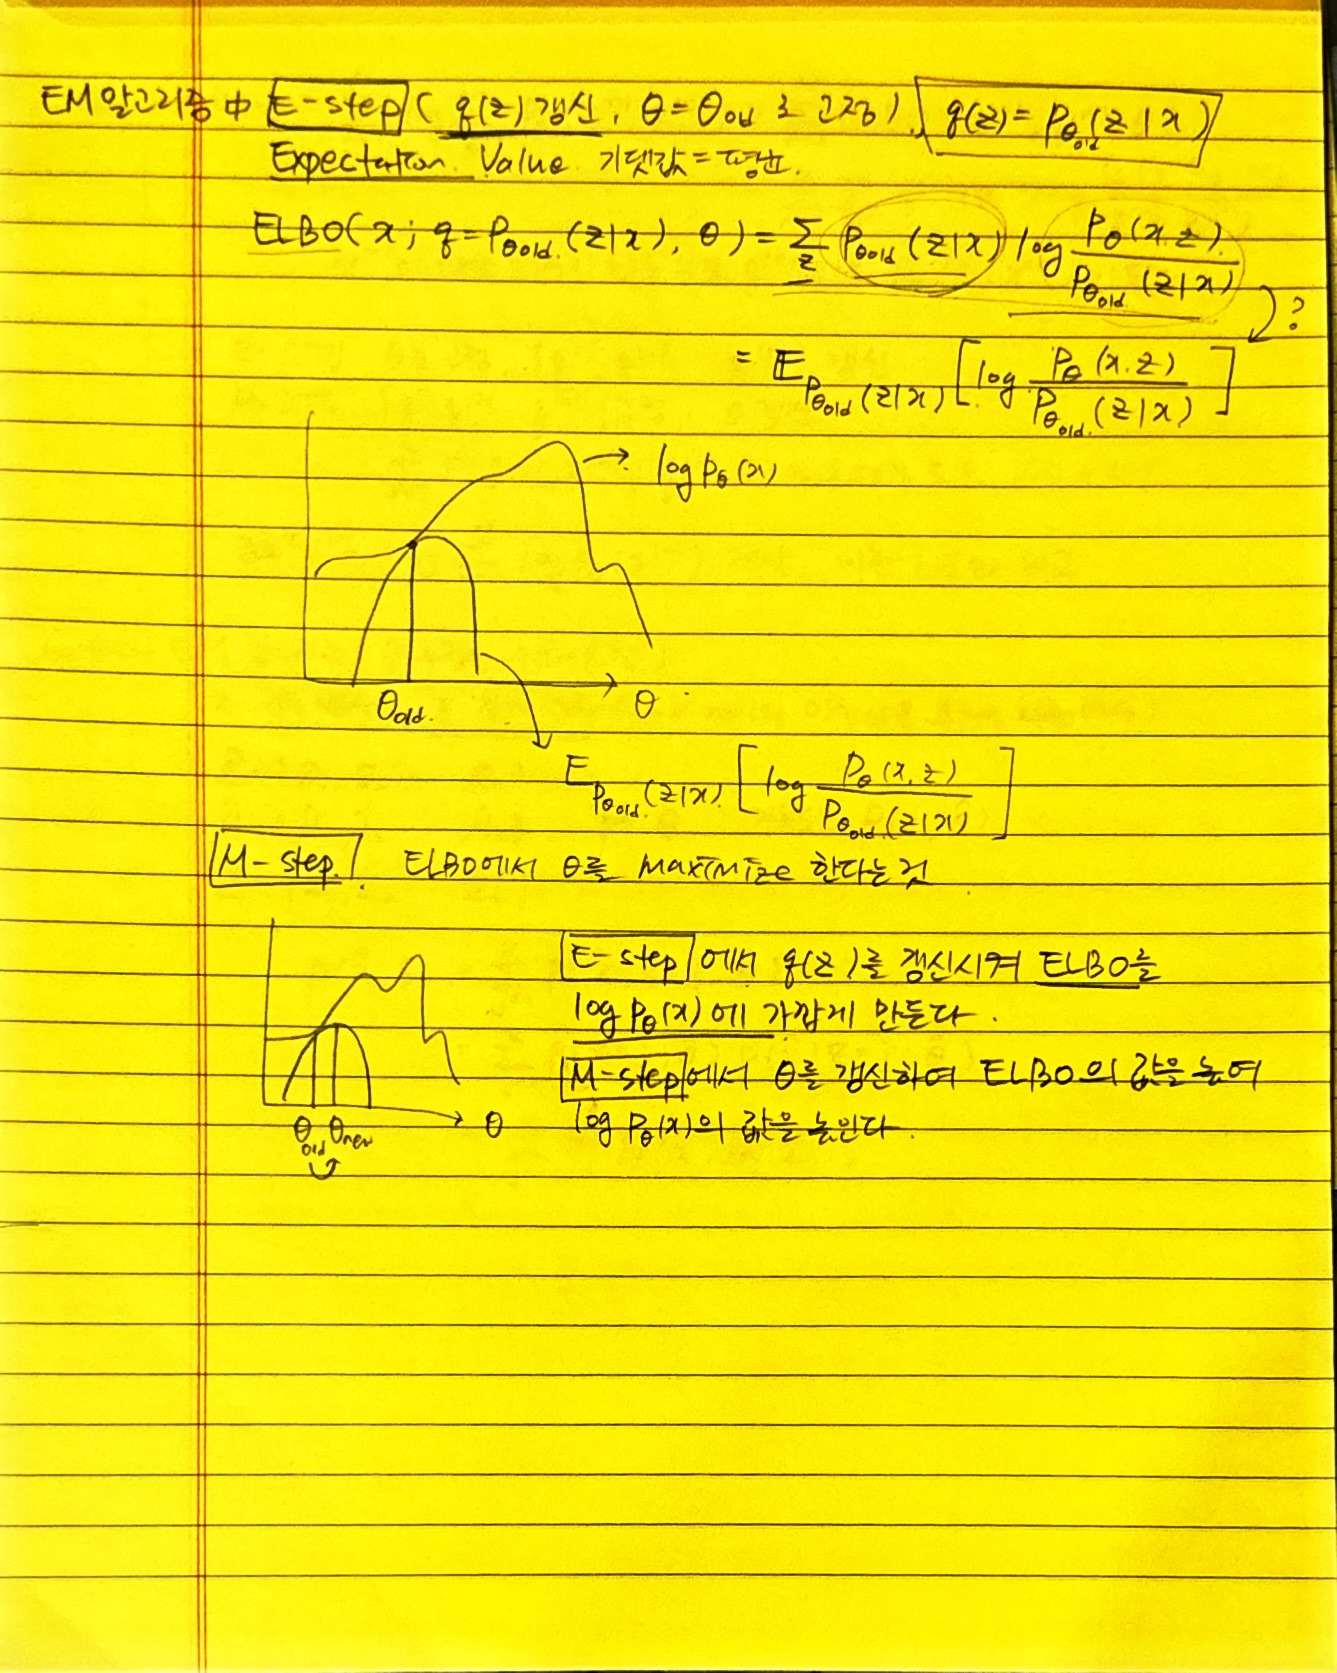 EM알고리즘 中 E-step ( q(z) 갱신, θ=θold 로 고정), q(z)=Pθold(z|x)
Expectation Value 기댓값=평균.
ELBO(x; q=Pθold(z|x), θ) = Σz Pθold(z|x) log Pθ(x.z) / Pθold(z|x)
?
= E Pθold(z|x) [log Pθ(x.z) / Pθold(z|x)]
→ log Pθ(x)
θold. θ
E Pθold(z|x). [log Pθ(x,z) / Pθold(z|x)]
M-step. ELBO에서 θ를 maximize 한다는 것
E-step 에서 q(z)를 갱신시켜 ELBO를
log Pθ(x)에 가깝게 만든다.
M-step에서 θ를 갱신하여 ELBO의 값을 높여
log Pθ(x)의 값을 높인다.
θold θnew θ